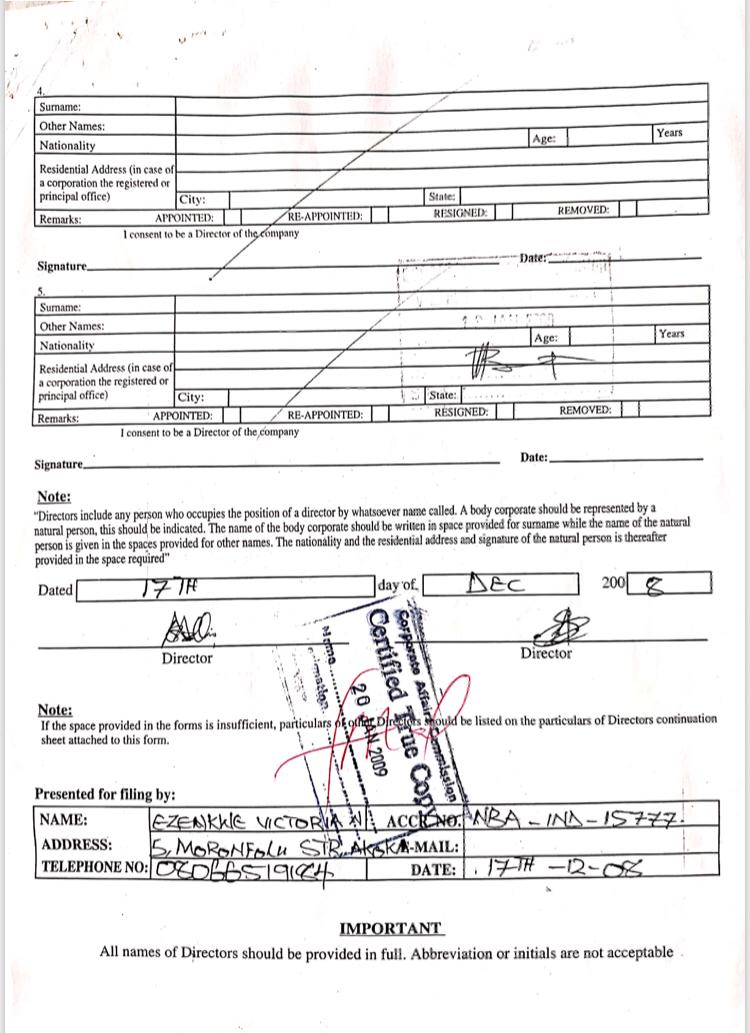 4.
Surname:
Other Names:
Nationality Age: Years
Residential Address (in case of
a corporation the registered or
principal office) City: State:
Remarks: APPOINTED: RE-APPOINTED: RESIGNED: REMOVED:
I consent to be a Director of the company
Signature Date:
5.
Surname:
Other Names:
Nationality Age: Years
Residential Address (in case of
a corporation the registered or
principal office) City: State:
Remarks: APPOINTED: RE-APPOINTED: RESIGNED: REMOVED:
I consent to be a Director of the company
Signature Date:
Note:
"Directors include any person who occupies the position of a director by whatsoever name called. A body corporate should be represented by a
natural person, this should be indicated. The name of the body corporate should be written in space provided for surname while the name of the natural
person is given in the spaces provided for other names. The nationality and the residential address and signature of the natural person is thereafter
provided in the space required"
Dated 17TH day of. DEC 200 8
Director Director
Corporate Affairs Commission
Certified True Copy
20 JAN 2009
Name
Note:
If the space provided in the forms is insufficient, particulars of other Directors should be listed on the particulars of Directors continuation
sheet attached to this form.
Presented for filing by:
NAME: EZENKWE VICTORIA N. ACCR NO. NBA-IND-15777.
ADDRESS: 5, MORONFOLU STR. AKOKA E-MAIL:
TELEPHONE NO: DATE: 17TH-12-08
IMPORTANT
All names of Directors should be provided in full. Abbreviation or initials are not acceptable